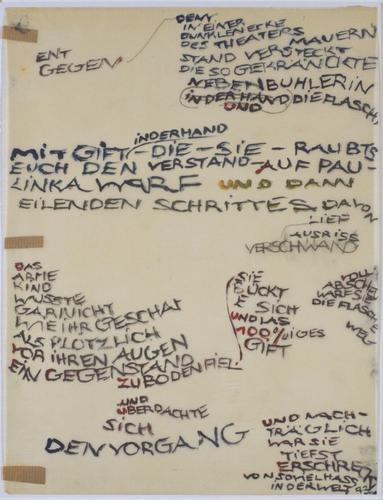 ENT
GEGEN
DENN
IN EINER
DUNKLEN ECKE
DES THEATERS MAUERN
STAND VERSTECKT
DIE SO GEKRÄNCKTE
NEBENBUHLERIN
IN DER HAND DIE FLASCH,
UND
IN DER HAND
MIT GIFT - DIE - SIE - RAUBTS
EUCH DEN VERSTAND - AUF PAU-
LINKA WARF UND DANN
EILENDEN SCHRITTES DAVON
LIEF
AUSRISS
VERSCHWAND
DAS
ARME
KIND
WUSSTE
GARNICHT
WIE IHR GESCHAH
ALS PLÖTZLICH
VOR IHREN AUGEN
EIN GEGENSTAND
ZU BODEN FIEL.
SIE
BÜCKT
SICH
UND LAS
100%IGES
GIFT
VOLL
ABSCHEU
WARF SIE
DIE FLASCHE
WEG
UND
ÜBERDACHTE
SICH
DEN VORGANG
UND NACH-
TRÄGLICH
WAR SIE
TIEFST
ERSCHRECKT
VON SOVIEL HASS
IN DER WELT